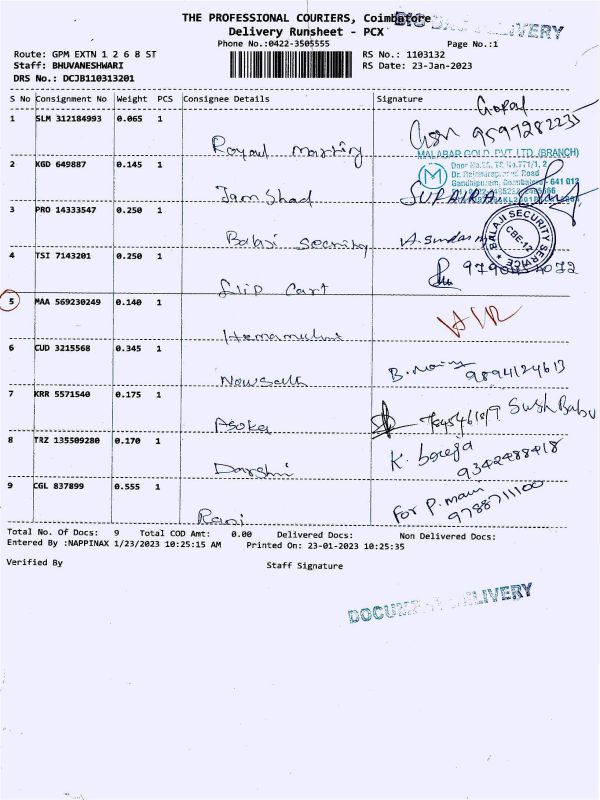 THE PROFESSIONAL COURIERS, Coimbatore
Delivery Runsheet - PCX
Phone No.:0422-3505555
Page No.:1
Route: GPM EXTN 1 2 6 8 ST
Staff: BHUVANESHWARI
DRS No.: DCJB110313201
RS No.: 1103132
RS Date: 23-Jan-2023
S No Consignment No Weight PCS Consignee Details Signature
1 SLM 312184993 0.065 1
Gopal
9597282235
MALABAR GOLD PVT LTD (BRANCH)
2 KGD 649887 0.145 1
Jamshad
3 PRO 14333547 0.250 1
Balaji Security
BALAJI SECURITY SERVICE
CBE-12
4 TSI 7143201 0.250 1
flip Cart
5 MAA 569230249 0.140 1
6 CUD 3215568 0.345 1
9894124613
7 KRR 5571540 0.175 1
Asoka
Sush Babu
8 TRZ 135509280 0.170 1
Darshni
9342488418
9 CGL 837899 0.555 1
Rani
For P. mani
9788711100
Total No. Of Docs: 9 Total COD Amt: 0.00 Delivered Docs: Non Delivered Docs:
Entered By :NAPPINAX 1/23/2023 10:25:15 AM Printed On: 23-01-2023 10:25:35
Verified By Staff Signature